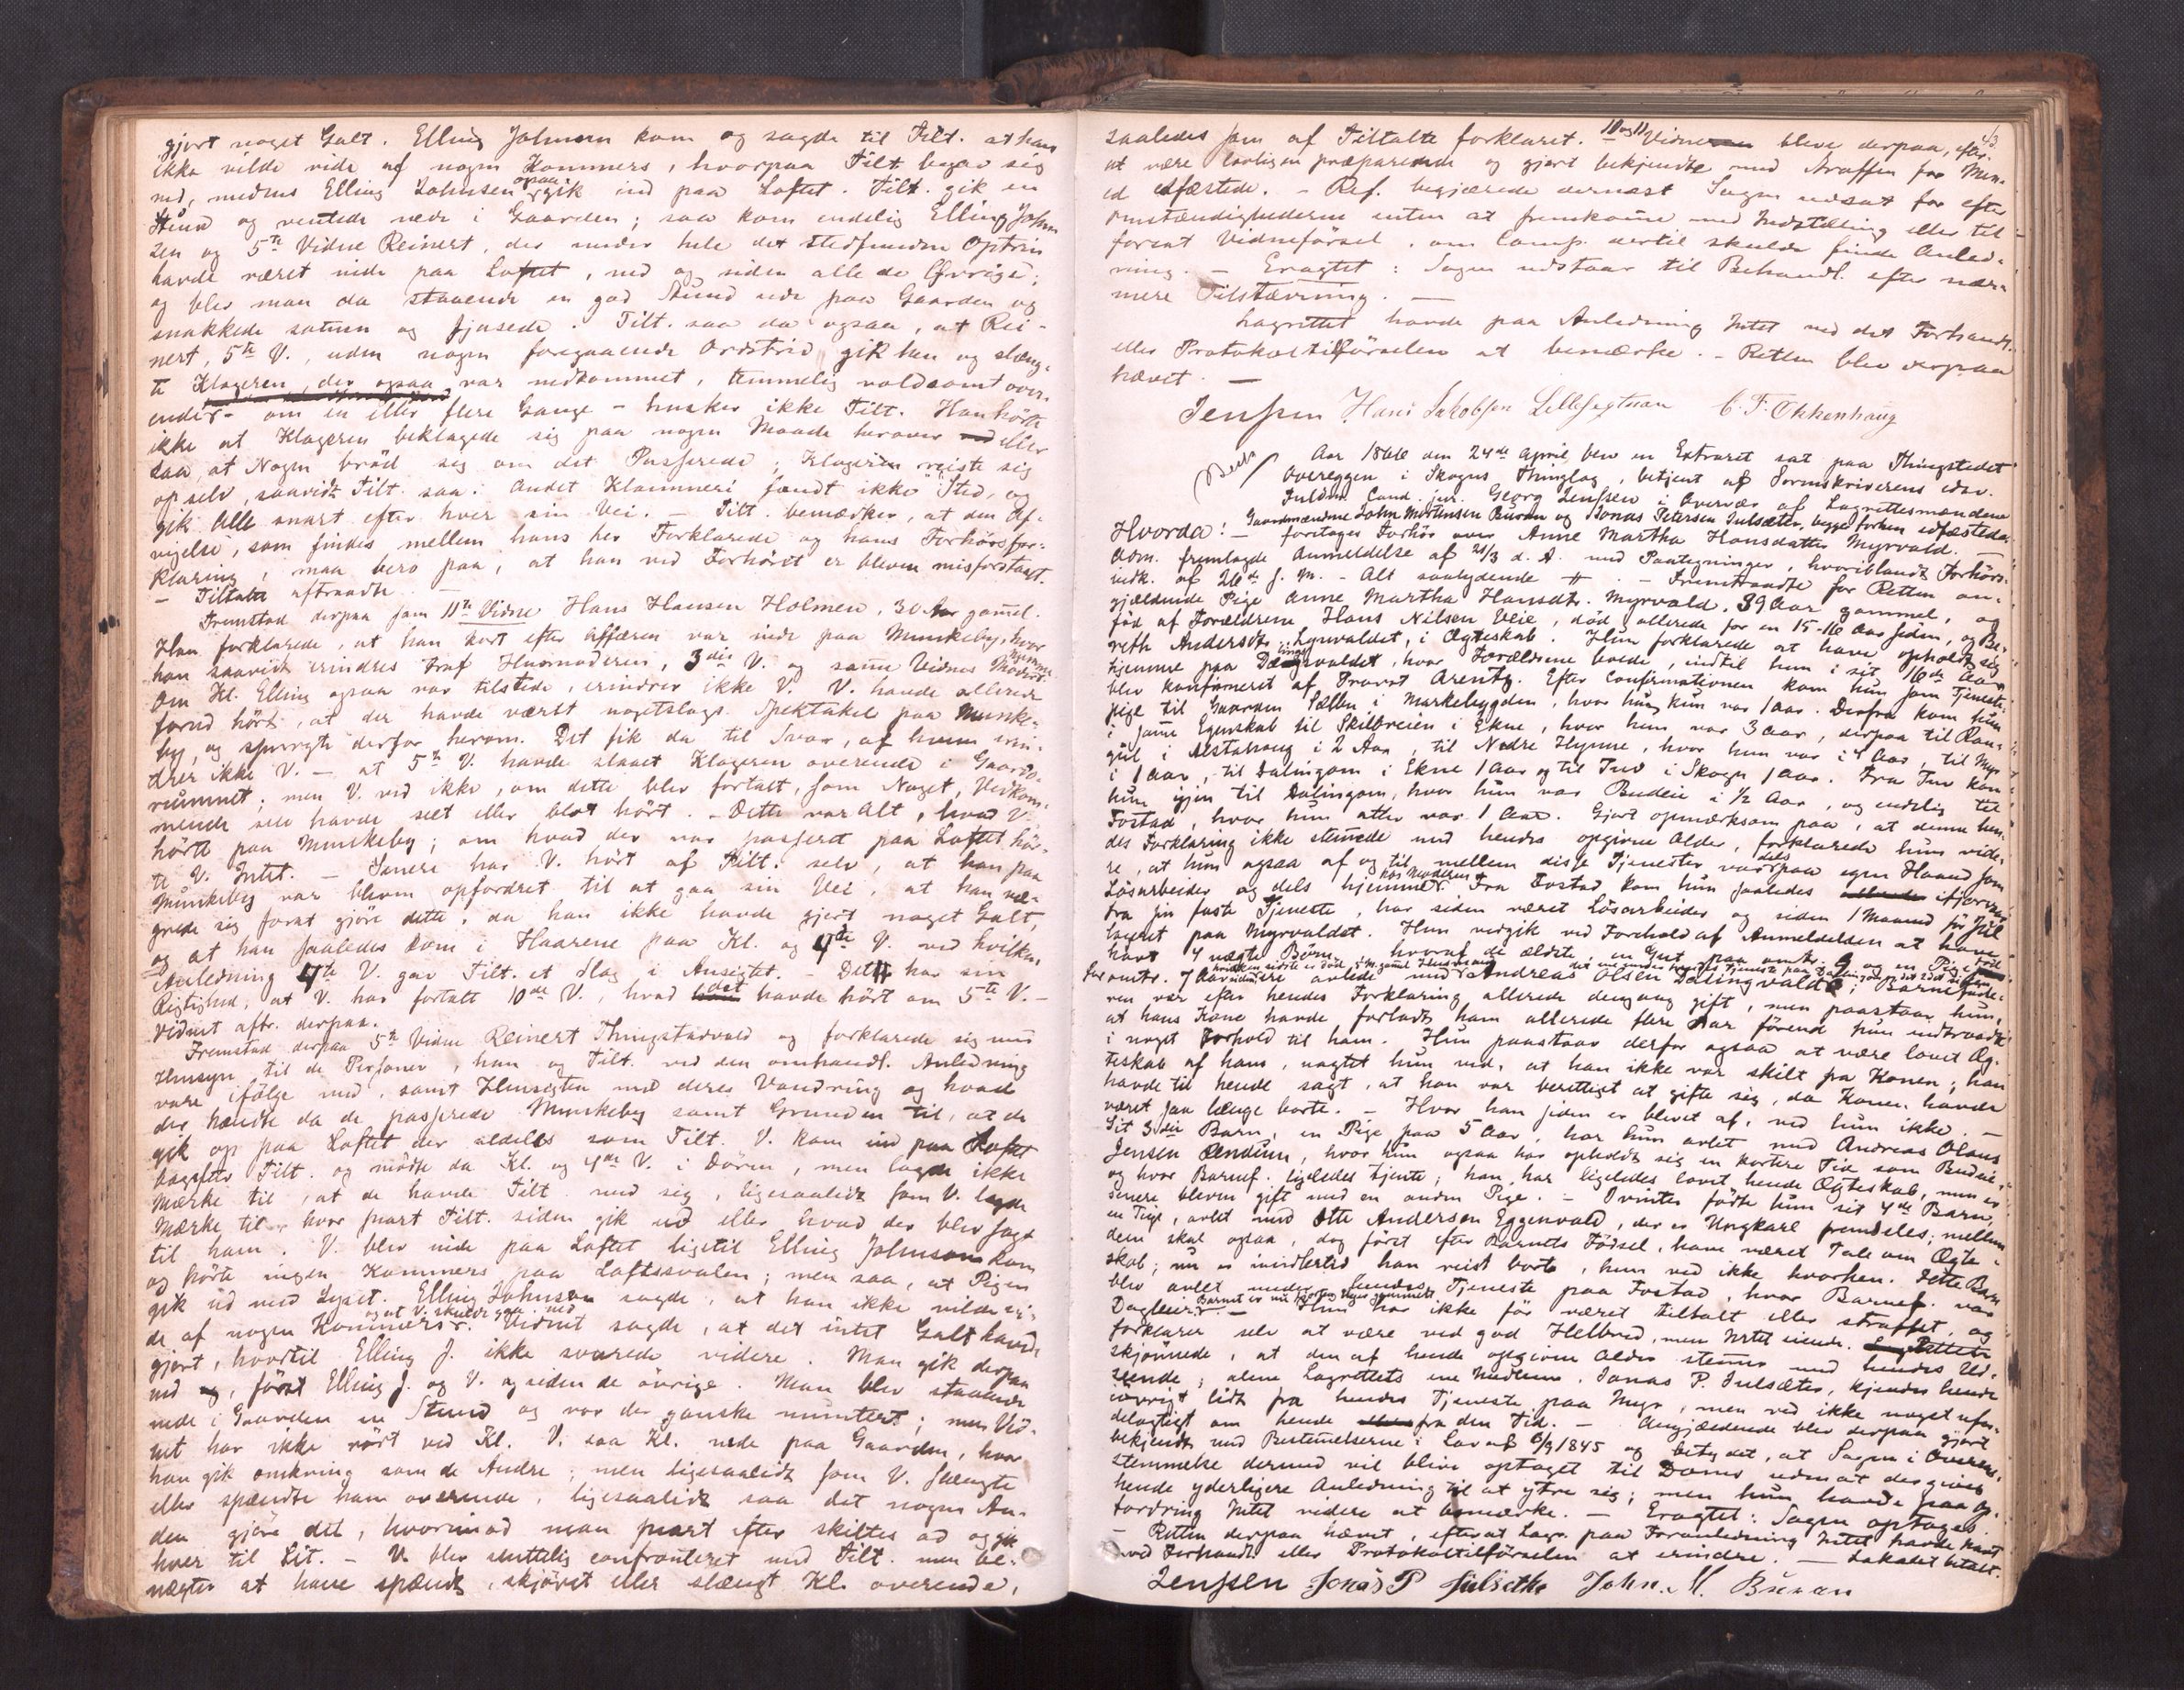 gjort noget Galt. Elling Johnsen kom og sagde til Tilt. at han
ikke vilde vide af nogen Kommers, hvorpaa Tilt. begav sig
ned, medens Elling Johnsen ogsaa gik ind paa Loftet. Tilt. gik en
Stund og ventede nede i Gaarden; saa kom endelig Elling John-
sen og 5te Vidne Reinert, der under hele det stedfundne Optrin
havde været inde paa Loftet, ned og siden alle de Øvrige;
og blev man da staaende en god Stund ude paa Gaarden og
snakkede sammen og fjasede. Tilt. saa da ogsaa, at Rei-
nert, 5te V., uden nogen foregaaende Ordstrid gik hen og slæng-
te Klageren, der ogsaa var nedkommet, temmelig voldsomt over-
ende - om en eller flere Gange - husker ikke Tilt. Han hørte
ikke at Klageren beklagede sig paa nogen Maade herover eller
saa, at Nogen brød sig om det Passerede; Klageren reiste sig
op selv, saavidt Tilt. saa. Andet Klammeri fandt ikke Sted, og
gik Alle snart efter hver sin Vei. - Tilt. bemærker, at den Af-
vigelse, som findes mellem hans her Forklarede og hans Forhørsfor-
klaring, maa bero paa, at han ved Forhøret er bleven misforstaaet.
- Tiltalte aftraadte. -
Fremstod derpaa som 11te Vidne Hans Hansen Holmen, 30 Aar gamel.
Han forklarede, at han kort efter Affæren var inde paa Munkeby, hvor
han saavidt erindres traf Husmoderen, 3die V. og samme Vidnes Moder hjemme
Om Kl. Elling ogsaa var tilstede, erindrer ikke V. V. havde allerede
forud hørt, at der havde været nogetslags Spektakel paa Munke-
by, og spurgte derfor herom. Det fik da til Svar, af hvem erin-
drer ikke V. - at 5te V. havde slaaet Klageren overende i Gaards-
rummet; men V. ved ikke, om dette blev fortalt, som Noget, Vedkom-
mende selv havde seet eller blot hørt. - Dette var Alt, hvad V.
hørte paa Munkeby; om hvad der var passeret paa Loftet hør-
te V. Intet. - Senere har V. hørt af Tilt. selv, at han paa
Munkeby var bleven opfordret til at gaa sin Vei, at han næ-
grede sig forat gjøre dette, da han ikke havde gjort noget Galt,
og at han saaledes kom i Haarene paa Kl. og 4de V. ved hvilken
Anledning 4te V. gav Tilt. et Slag i Ansigtet. - Det har sin
Rigtighed, at V. har fortalt 10de V., hvad det havde hørt om 5te V. -
Vidnet aftr. derpaa.
Fremstod derpaa 5te Vidne Reinert Thingstadvald og forklarede sig med
Hensyn til de Personer, han og Tilt. ved den omhandl. Anledning
vare ifølge med, samt Hensigten med deres Vandring og hvad
der hændte da de passerede Munkeby samt Grunden til, at de
gik op paa Loftet der aldeles som Tilt. V. kom ind paa Loftet
bagefter Tilt. og mødte da Kl. og 4de V. i Døren, men lagde ikke
Mærke til, at de havde Tilt. med sig, ligesaalidt som V. lagde
Mærke til, hvor snart Tilt. siden gik ud eller hvad der blev sagt
til ham. V. blev inde paa Loftet ligetil Elling Johnsen kom
og hørte ingen Kommers paa Loftssvalen; men saa, at Pigen
gik ud med Lyset. Elling Johnsen sagde, at han ikke vilde vi-
de af nogen Kommers og at V. skulde gaa ned. Vidnet sagde, at det intet Galt havde
gjort, hvortil Elling J. ikke svarede videre. Man gik derpaa
ned, først Elling J. og V. og siden de øvrige. Man blev staaende
nede i Gaarden en Stund og var der ganske muntert; men Vid-
net har ikke rørt ved Kl. V. saa Kl. nede paa Gaarden, hvor
han gik omkring som de Andre; men ligesaalidt som V. slængte
eller spændte ham overende, ligesaalidt saa det nogen An-
den gjøre det, hvorimod man snart efter skiltes ad og gik
hver til Sit. - V. blev sluttelig confronteret med Tilt. men be-
nægter at have spændt, skjøvet eller slængt Kl. overende,
saaledes som af Tiltalte forklaret. 10 og 11 Vidne bleve derpaa, efter
at være lovligen præparerede og gjort bekjendte med Straffen for Men-
ed edfæstede. - Ref. begjærede dernæst Sagen udsat for efter
Omstændighederne enten at fremkomme med Indstilling eller til
forsat Vidneførsel, om Comp. dertil skulde finde Anled-
ning. - Eragtet: Sagen udstaar til Behandl. efter nær-
mere Tilstævning. -
Lagrettet havde paa Anledning Intet ved det Forhandl.
eller Protokoltilførselen at bemærke. - Retten blev derpaa
hævet. -
Jenssen Hans Jakobsen C. F. Okkenhaug
Aar 1866 den 24de April blev en Extraret sat paa Thingstedet
Overeggen i Skogns Thinglag, betjent af Sorenskriverens edsv.
Fuldm. Cand. jur. Georg Jenssen i Overvær af Lagrettesmændene
Gaardmændene John Mortensen Buran og Jonas Petersen Julsæter, begge forhen edfæstede.
Hvorda: - foretoges Forhør over Anne Martha Hansdatter Myrvald. -
Adm. fremlagde Anmeldelse af 21/3 d. A. med Paategninger, hvoriblandt Forhørs-
indk. af 26de f. M. - Alt saalydende # . - Fremstaadte for Retten an-
gjældende Pige Anne Martha Hansdtr. Myrvald, 39 Aar gammel, og
fød af Forældrene Hans Nilsen Veie, død allerede for en 15-16 Aar siden, og Be-
reth Andersdtr. i Ægteskab. Hun forklarede at have opholdt sig
hjemme paa hvor Forældrene boede, indtil hun i sit 16de Aar
blev konfirmeret af Provst Arentz. Efter Confirmationen kom hun som Tjeneste-
pige til Gaarden i Markebygden, hvor hun kun var 1 Aar. Derfra kom hun
i samme Egenskab til Skilbreien i Ekne, hvor hun var 3 Aar, derpaa til
i Alstahoug i 2 Aar, til Nedre Hynne, hvor hun var i 4 Aar, til Myr
i 1 Aar, til Dalingom i Ekne 1 Aar og til Tuv i Skogn 1 Aar. Fra Tuv kom
hun igjen til Dalingom, hvor hun var Budeie i 1/2 Aar, og endelig til
Fostad, hvor hun atter var 1 Aar. Gjort opmærksom paa, at denne hen-
des Forklaring ikke stemmede med hendes opgivne Alder, forklarede hun vide-
re, at hun ogsaa af og til mellem disse Tjenester var dels paa egen Haand som
Løsarbeider og dels hjemme hos Moderen. Fra Fostad kom hun saaledes ifjorvaar
fra sin faste Tjeneste, har siden været Løsarbeider og siden 1 Maaned før Jul
været paa Myrvaldet. Hun vedgik ved Forehold af Anmeldelsen at have
havt 4 uægte Børn, hvoraf de ældste, en Gut paa omtr. 9 og en Pige
for omtr. 7 Aar siden, ere avlede med Andreas Olsen Dalingvald; Barnefade-
ren var efter hendes Forklaring allerede dengang gift, men paastaar hun,
at hans Kone havde forladt ham allerede flere Aar førend hun indtraadte
i noget Forhold til ham. Hun paastaar derfor ogsaa at være lovet Æg-
teskab af ham, uagtet hun ved, at han ikke var skilt fra Konen; han
havde til hende sagt, at han var berettiget at gifte sig, da Konen havde
været saa længe borte. - Hvor han siden er blevet af, ved hun ikke. -
Sit 3die Barn, en Pige paa 5 Aar, har hun avlet med Andreas Olaus
Jensen hvor hun ogsaa har opholdt sig en kortere Tid som Budeie,
og hvor Barnef. ligeledes tjente; han har ligeledes lovet hende Ægteskab, men er
senere bleven gift med en anden Pige. - I vinter fødte hun sit 4de Barn,
en Pige, avlet med Otte Andersen Eggenvald, der er Ungkarl fremdeles; mellem
dem skal ogsaa, dog først efter Barnets Fødsel, have været Tale om Ægte-
skab; nu er imidlertid han reist borte, hun ved ikke hvorhen. Dette Barn
blev avlet under hendes Tjeneste paa Fostad, hvor Barnef. var
Dagleier. - Hun har ikke før været tiltalt eller straffet, og
forklarer selv at være ved god Helbred, men Intet eiende. Lagrettet
skjønnede, at den af hende opgivne Alder stemmer med hendes Ud-
seende; alene Lagrettets ene Medlem, Jonas P. Julsæter, kjender hende
iøvrigt lidt fra hendes Tjeneste paa Myr, men ved ikke noget ufor-
delagtigt om hende fra den Tid. - Angjældende blev derpaa gjort
bekjendt med Bestemmelserne i Lov af 6/9 1845 og betydet, at Sagen i Overens-
stemmelse dermed vil blive optaget til Doms uden at der gives
hende yderligere Anledning til at ytre sig; men hun havde paa Op-
fordring Intet videre at bemærke. - Eragtet: Sagen optages.
- Retten derpaa hævet, efterat Lagr. paa Foranledning Intet havde havt
ved Forhandl. eller Protokoltilførselen at erindre. - Lokalet betalt.
Jenssen Jonas P Julsethr John. M. Buran